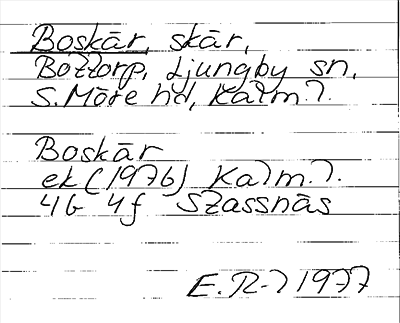 Boskär, skär,
Bottorp, Ljungby sn,
S. Möre hd, Kalm. l.
Boskär
ek (1976) Kalm. l.
4G 4f Stassnäs
E.R-l 1977